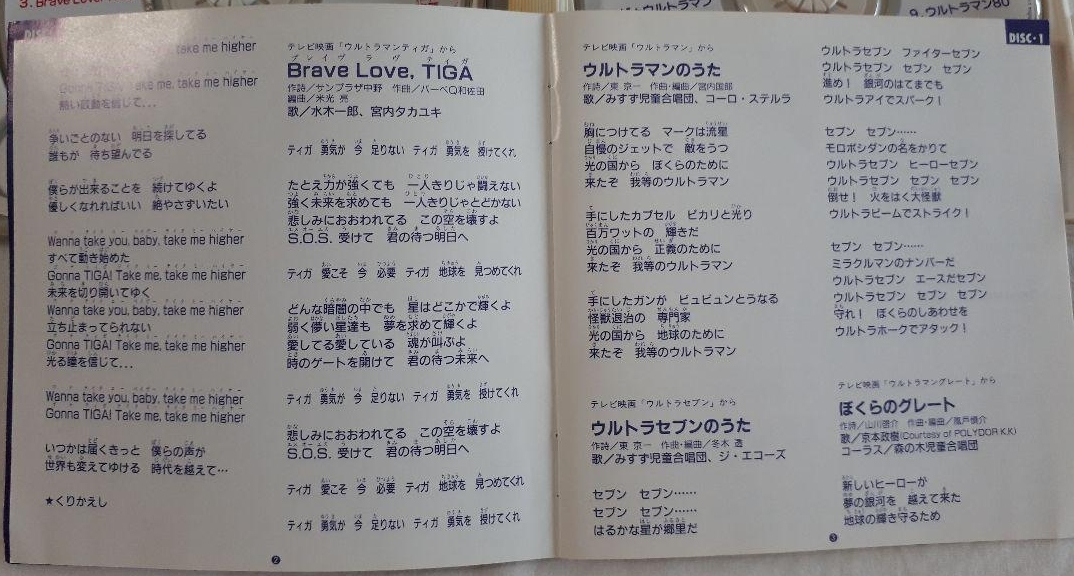 3. Brave Love,
ウルトラマン
9. ウルトラマン80
take me higher
take me, take me higher
熱い鼓動を信じて...
争いごとのない 明日を探してる
誰もが 待ち望んでる
僕らが出来ることを 続けてゆくよ
優しくなれればいい 絶やさずいたい
Wanna take you, baby, take me higher
すべて動き始めた
Gonna TIGA! Take me, take me higher
未来を切り開いてゆく
Wanna take you, baby, take me higher
立ち止まってられない
Gonna TIGA! Take me, take me higher
光る瞳を信じて...
Wanna take you, baby, take me higher
Gonna TIGA! Take me, take me higher
いつかは届くきっと 僕らの声が
世界も変えてゆける 時代を越えて…
★くりかえし
テレビ映画「ウルトラマンティガ」から
ブレイヴ ラヴ ティガ
Brave Love, TIGA
作詩/サンプラザ中野 作曲/バーベQ和佐田
編曲/米光 亮
歌/水木一郎、宮内タカユキ
ティガ 勇気が 今 足りない ティガ 勇気を 授けてくれ
たとえ力が強くても 一人きりじゃ闘えない
強く未来を求めても 一人きりじゃとどかない
悲しみにおおわれてる この空を壊すよ
S.O.S. 受けて 君の待つ明日へ
ティガ 愛こそ 今 必要 ティガ 地球を 見つめてくれ
どんな暗闇の中でも 星はどこかで輝くよ
弱く儚い星達も 夢を求めて輝くよ
愛してる愛している 魂が叫ぶよ
時のゲートを開けて 君の待つ未来へ
ティガ 勇気が 今 足りない ティガ 勇気を 授けてくれ
悲しみにおおわれてる この空を壊すよ
S.O.S. 受けて 君の待つ明日へ
ティガ 愛こそ 今 必要 ティガ 地球を 見つめてくれ
ティガ 勇気が 今 足りない ティガ 勇気を 授けてくれ
2
テレビ映画「ウルトラマン」から
ウルトラマンのうた
作詩/東 京一 作曲・編曲/宮内国郎
歌/みすず児童合唱団、コーロ・ステルラ
胸につけてる マークは流星
自慢のジェットで 敵をうつ
光の国から ぼくらのために
来たぞ 我等のウルトラマン
手にしたカプセル ピカリと光り
百万ワットの 輝きだ
光の国から 正義のために
来たぞ 我等のウルトラマン
手にしたガンが ビュビュンとうなる
怪獣退治の 専門家
光の国から 地球のために
来たぞ 我等のウルトラマン
テレビ映画「ウルトラセブン」から
ウルトラセブンのうた
作詩/東 京一 作曲・編曲/冬木 透
歌/みすず児童合唱団、ジ・エコーズ
セブン セブン……
セブン セブン……
はるかな星が郷里だ
DISC・1
ウルトラセブン ファイターセブン
ウルトラセブン セブン セブン
進め! 銀河のはてまでも
ウルトラアイでスパーク!
セブン セブン……
モロボシダンの名をかりて
ウルトラセブン ヒーローセブン
ウルトラセブン セブン セブン
倒せ! 火をはく大怪獣
ウルトラビームでストライク!
セブン セブン……
ミラクルマンのナンバーだ
ウルトラセブン エースだセブン
ウルトラセブン セブン セブン
守れ! ぼくらのしあわせを
ウルトラホークでアタック!
テレビ映画「ウルトラマングレート」から
ぼくらのグレート
作詩/山川啓介 作曲・編曲/風戸慎介
歌/京本政樹(Courtesy of POLYDOR K.K)
コーラス/森の木児童合唱団
新しいヒーローが
夢の銀河を 越えて来た
地球の輝き守るため
3